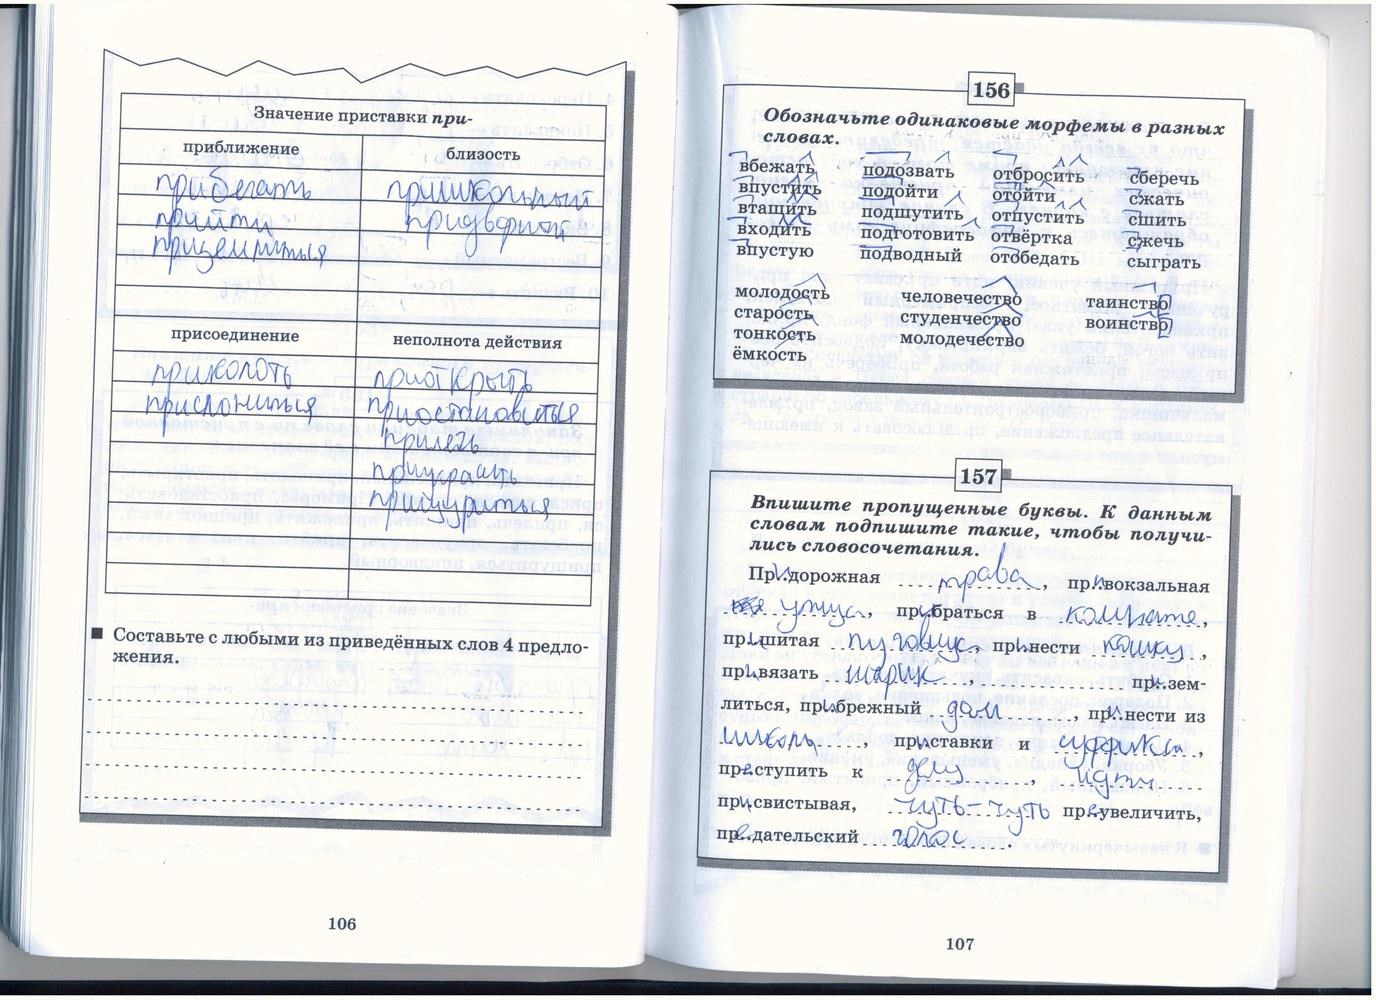 Значение приставки при-
приближение близость
прибегать пришкольный
прийти придворный
приземлиться
присоединение неполнота действия
приколоть приоткрыть
прислониться приостановиться
прилечь
приукрасить
прищуриться
Составьте с любыми из приведённых слов 4 предло-
жения.
106
156
Обозначьте одинаковые морфемы в разных
словах.
вбежать подозвать отбросить сберечь
впустить подойти отойти сжать
втащить подшутить отпустить сшить
входить подготовить отвёртка сжечь
впустую подводный отобедать сыграть
молодость человечество таинство
старость студенчество воинство
тонкость молодечество
ёмкость
157
Впишите пропущенные буквы. К данным
словам подпишите такие, чтобы получи-
лись словосочетания.
Придорожная трава, привокзальная
улица, прибраться в комнате,
пришитая пуговица, принести кошку,
привязать шарик, призем-
литься, прибрежный дом, принести из
школы, приставки и суффиксы,
преступить к делу, идти
присвистывая, чуть-чуть преувеличить,
предательский голос.
107